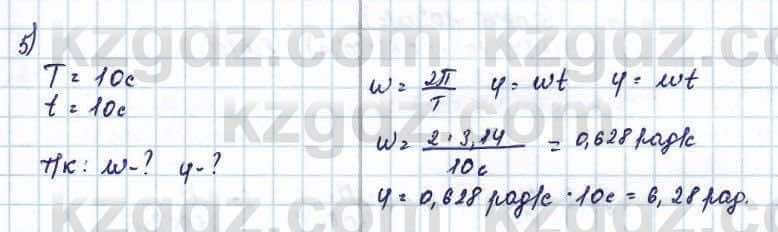 5)
T = 10с
t = 10с
т/к: ω-? φ-?
ω = 2π/T φ = ωt φ = ωt
ω = 2·3,14/10с = 0,628 рад/с
φ = 0,628 рад/с · 10с = 6,28 рад.
kzgdz.com kzgdz.com
kzgdz.com
kzgdz.com kzgdz.com